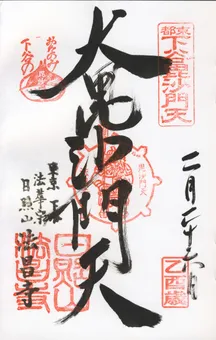 東都
下谷毘沙門天
大毘沙門天
二月二十六日
乙酉歳
毘沙門天
下谷の
東京
法華宗
日照山
法昌寺
日照山
法昌寺